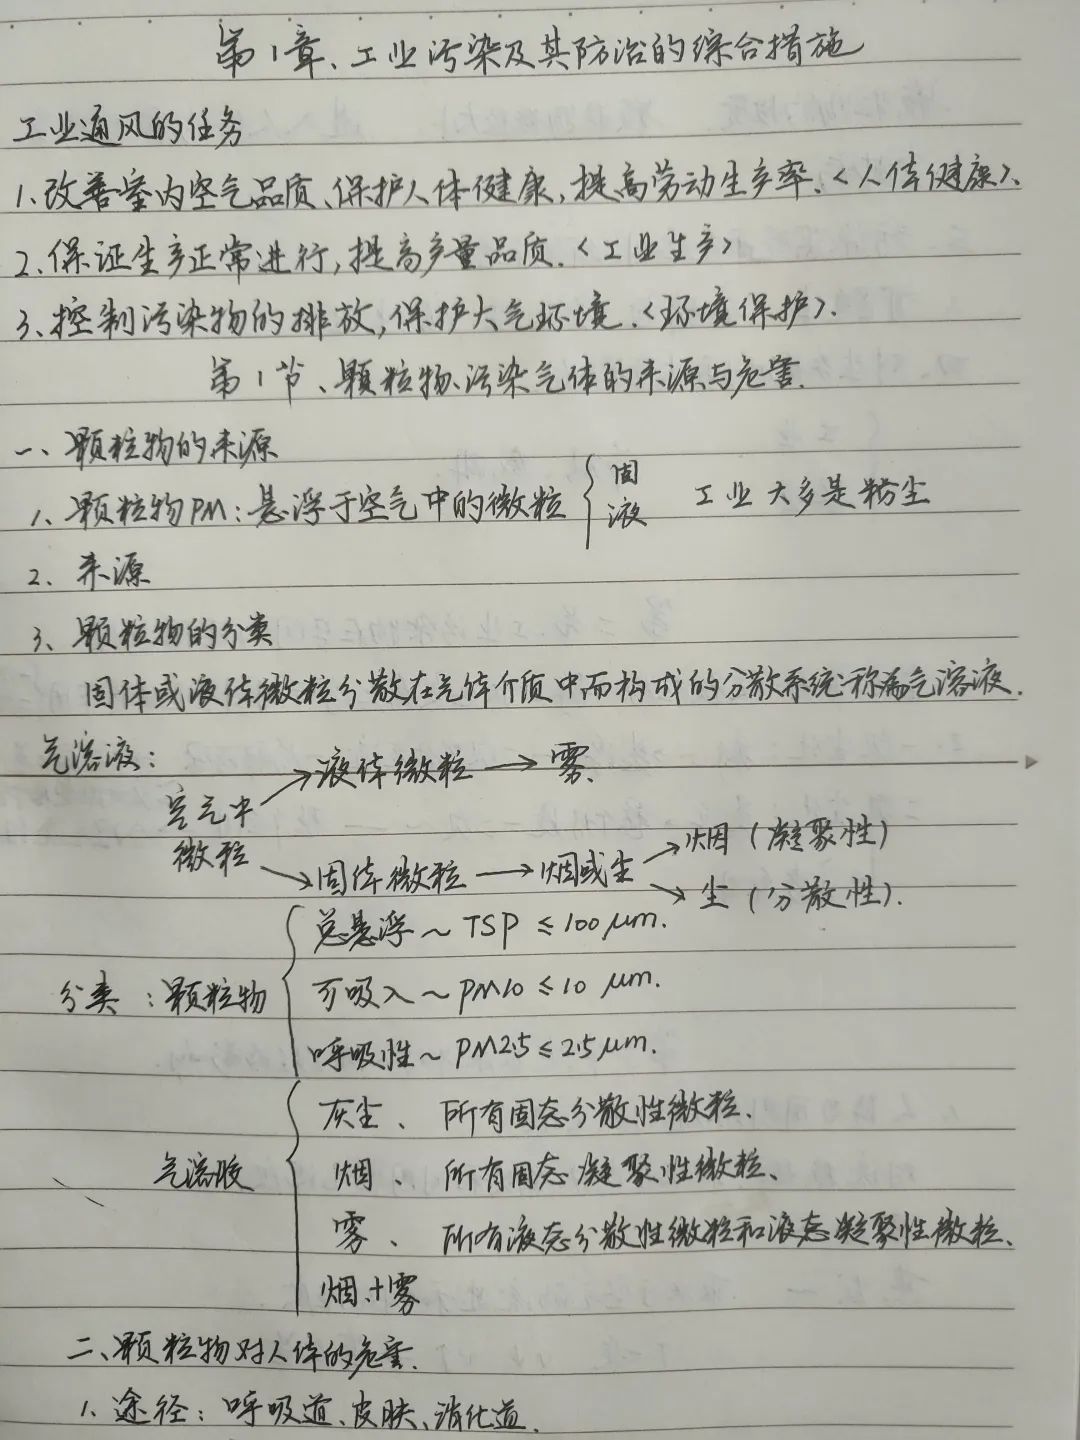 第1章、工业污染及其防治的综合措施
工业通风的任务
1、改善室内空气品质、保护人体健康,提高劳动生产率、<人体健康>、
2、保证生产正常进行,提高产量品质.<工业生产>
3、控制污染物的排放,保护大气环境.<环境保护>.
第1节、颗粒物、污染气体的来源与危害.
一、颗粒物的来源
1、颗粒物PM:悬浮于空气中的微粒 { 固 液 工业大多是粉尘
2、来源
3、颗粒物的分类
固体或液体微粒分散在气体介质中而构成的分散系统称为气溶液.
气溶液:
空气中微粒 → 液体微粒 → 雾.
→ 固体微粒 → 烟或尘 → 烟(凝聚性)
→ 尘(分散性).
分类:颗粒物 { 总悬浮~TSP ≤100μm.
可吸入~PM10 ≤10 μm.
呼吸性~PM2.5≤2.5μm.
气溶胶 { 灰尘、所有固态分散性微粒.
烟、所有固态凝聚性微粒、
雾、所有液态分散性微粒和液态凝聚性微粒、
烟+雾
二、颗粒物对人体的危害.
1、途径:呼吸道、皮肤、消化道.